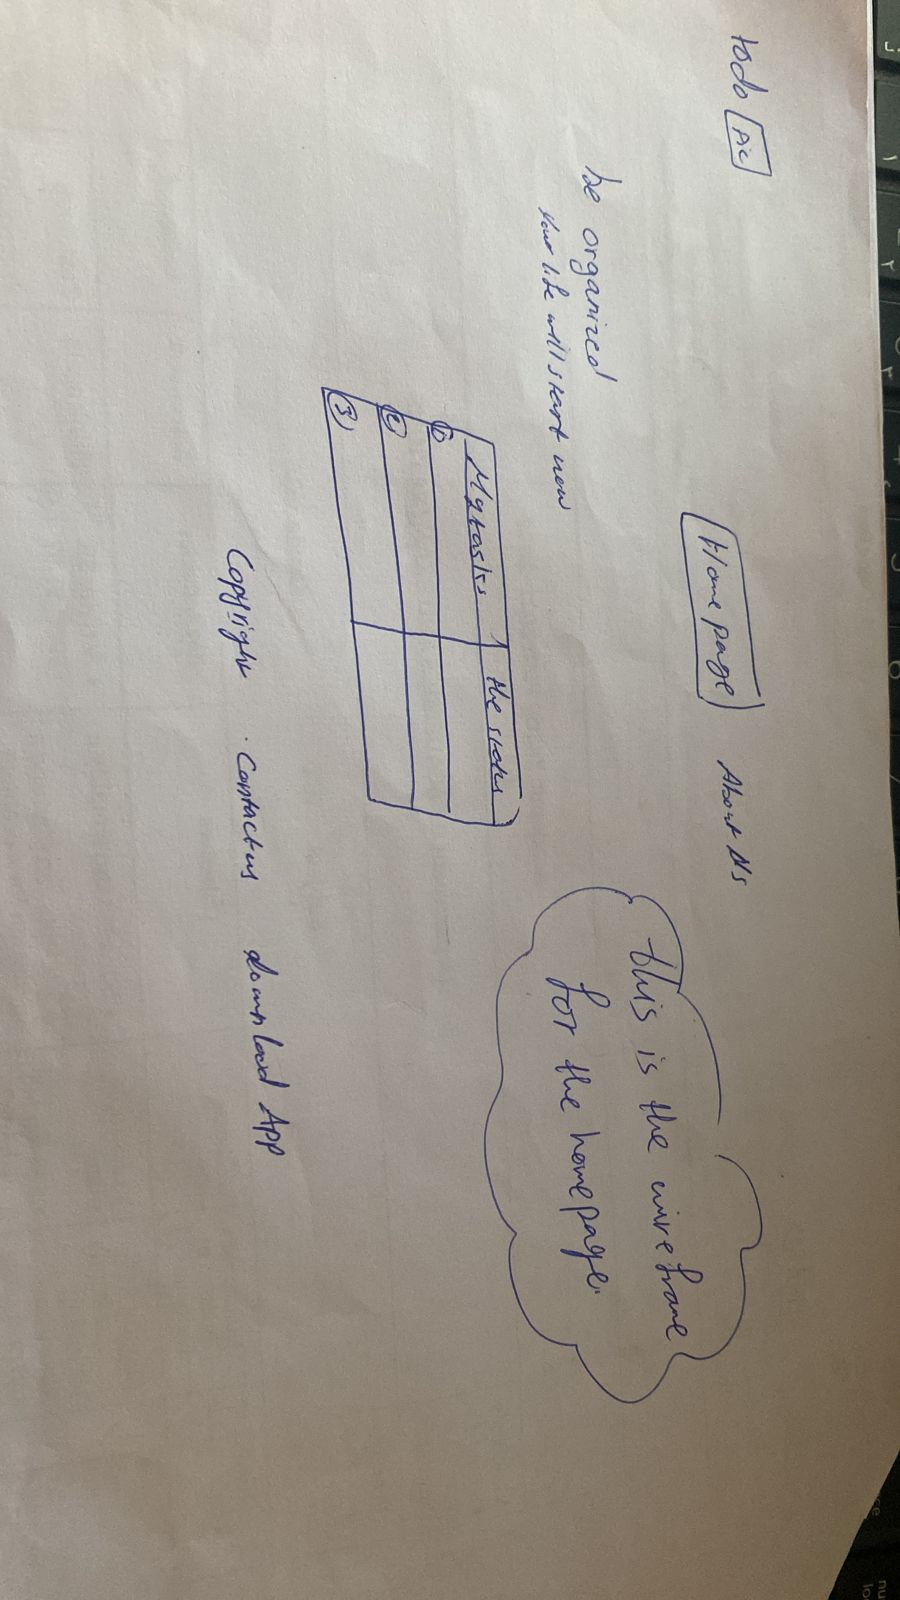 todo Pic
Homepage About Us
this is the wireframe
for the homepage.
be organized
Your life will start now
My tasks the status
1
2
3
Copyright Contact us download App